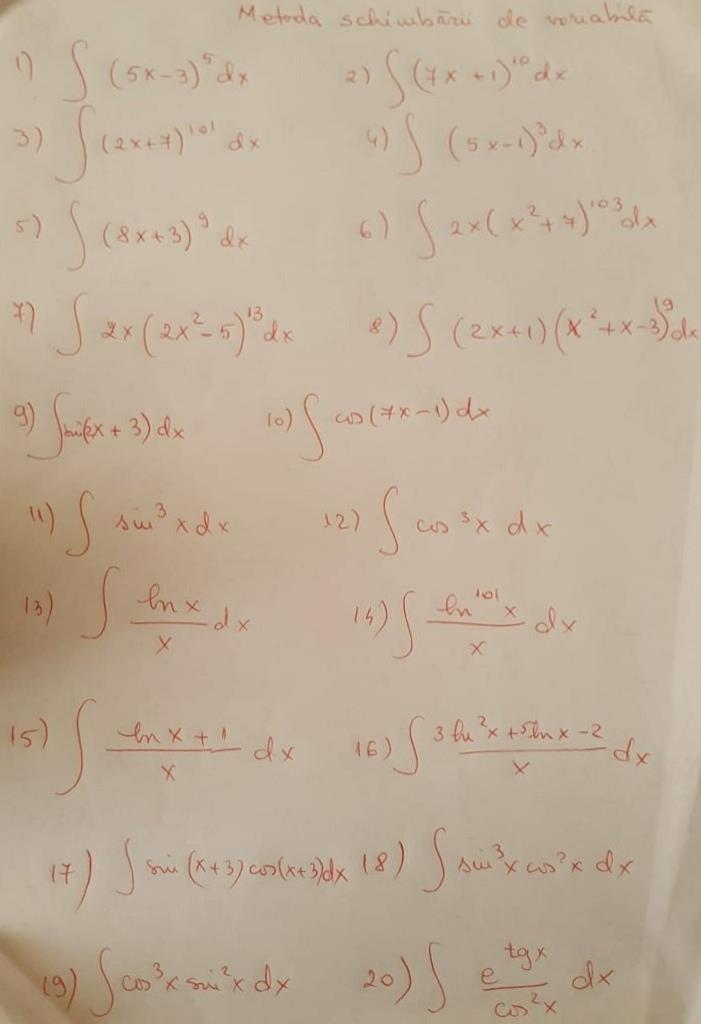 Metoda schimbării de variabilă
1) ∫ (5x-3)⁵ dx 2) ∫ (7x+1)¹⁰ dx
3) ∫ (2x+7)¹⁰¹ dx 4) ∫ (5x-1)³ dx
5) ∫ (8x+3)⁹ dx 6) ∫ 2x(x²+7)¹⁰³ dx
7) ∫ 2x(2x²-5)¹³ dx 8) ∫ (2x+1)(x²+x-3)¹⁹ dx
9) ∫ sin(2x+3) dx 10) ∫ cos(7x-1) dx
11) ∫ sin³x dx 12) ∫ cos³x dx
13) ∫ ln x / x dx 14) ∫ ln¹⁰¹x / x dx
15) ∫ ln x + 1 / x dx 16) ∫ 3 ln²x + 5 ln x - 2 / x dx
17) ∫ sin(x+3) cos(x+3) dx 18) ∫ sin³x cos²x dx
19) ∫ cos³x sin²x dx 20) ∫ e^tg x / cos²x dx